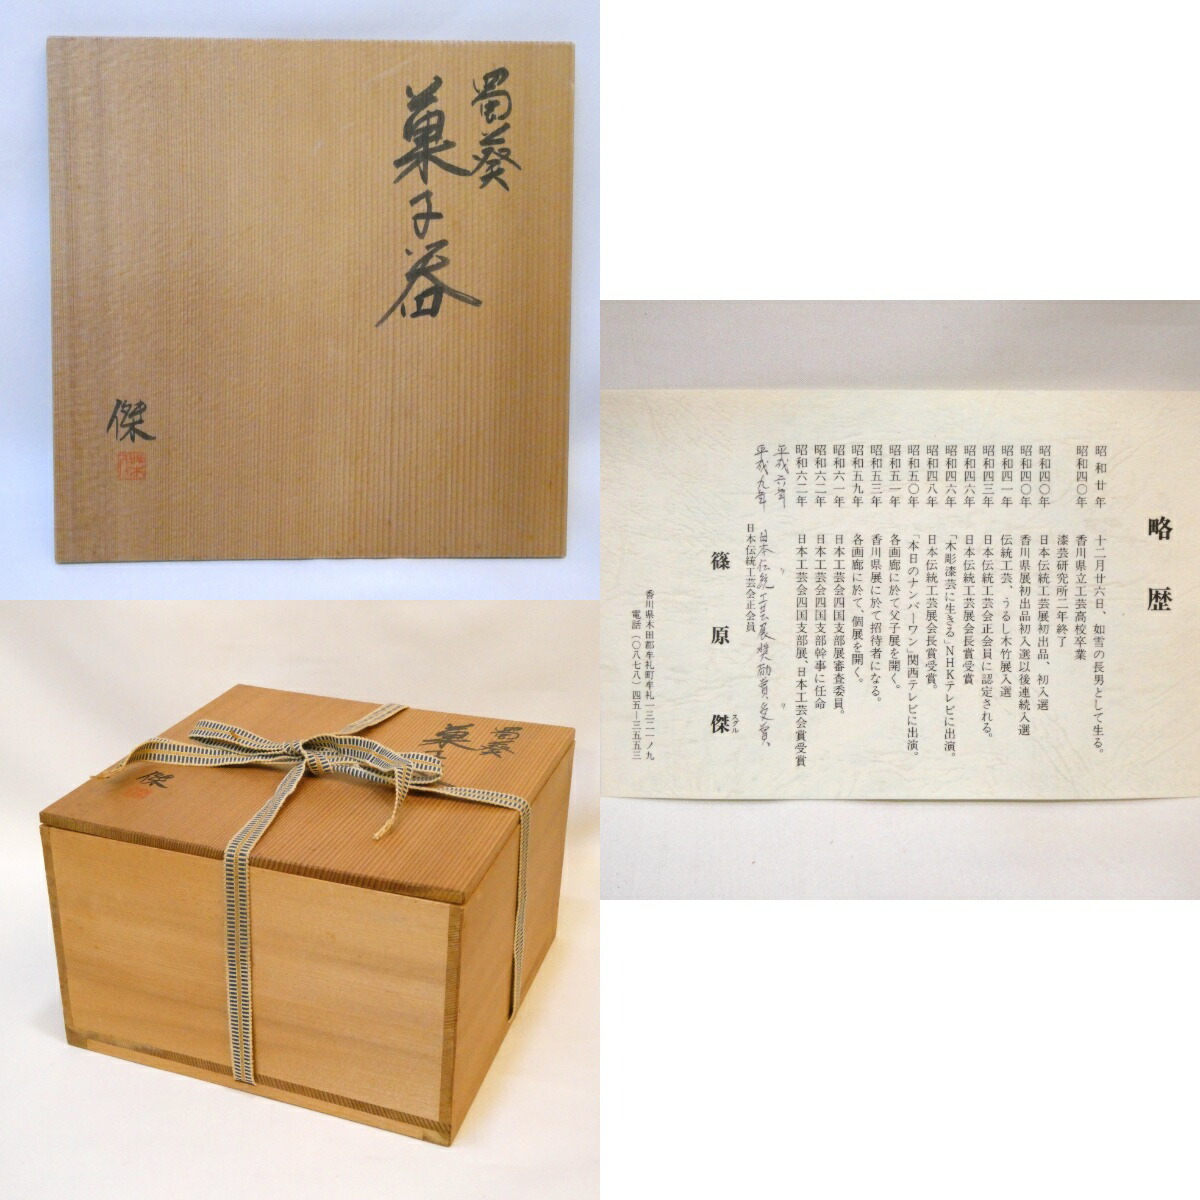 蜀葵
菓子器
傑
略歴
昭和廿年 十二月廿六日、如雪の長男として生る。
昭和四〇年 香川県立工芸高校卒業
漆芸研究所二年終了
昭和四〇年 日本伝統工芸展初出品、初入選
昭和四〇年 香川県展初出品初入選以後連続入選
昭和四一年 伝統工芸、うるし木竹展入選
昭和四三年 日本伝統工芸会正会員に認定される。
昭和四六年 日本伝統工芸展会長賞受賞
昭和四六年 「木彫漆芸に生きる」NHKテレビに出演。
昭和四八年 日本伝統工芸展会長賞受賞。
昭和五〇年 「本日のナンバーワン」関西テレビに出演。
昭和五一年 各画廊に於て父子展を開く。
昭和五三年 香川県展に於て招待者になる。
昭和五九年 各画廊に於て、個展を開く。
昭和六一年 日本工芸会四国支部展審査委員。
昭和六二年 日本工芸会四国支部幹事に任命
昭和六二年 日本工芸会四国支部展、日本工芸会賞受賞
平成六年 日本伝統工芸展奨励賞受賞、
平成九年 〃 〃
日本伝統工芸会正会員
篠原傑
スグル
香川県木田郡牟礼町牟礼一三二一ノ九
電話(〇八七八)四五―三五五三
蜀葵
菓子
傑